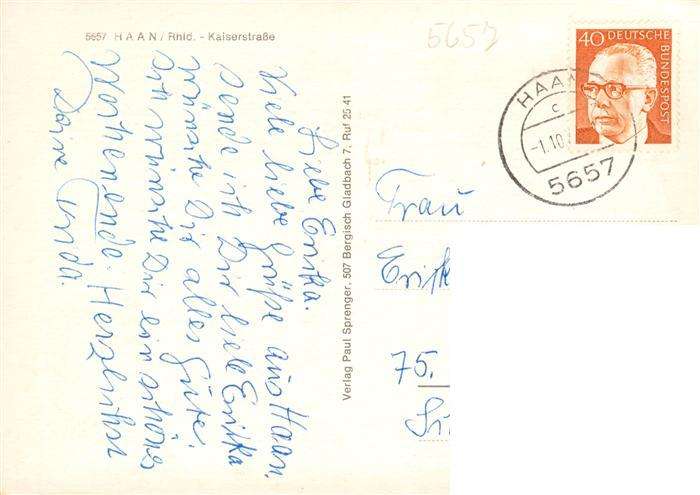 5657 HAAN/Rhld. - Kaiserstraße
5657
40 DEUTSCHE BUNDESPOST
HAAN
c
-1.10.
5657
Liebe Erika.
Viele liebe Grüße aus Haan,
sende ich Dir liebe Erika
wünsche Dir alles Gute.
Ich wünsche Dir ein schönes
Wochenende. Herzlichst
Deine
Verlag Paul Sprenger, 507 Bergisch Gladbach 7, Ruf 25 41
Frau
Erik
75.